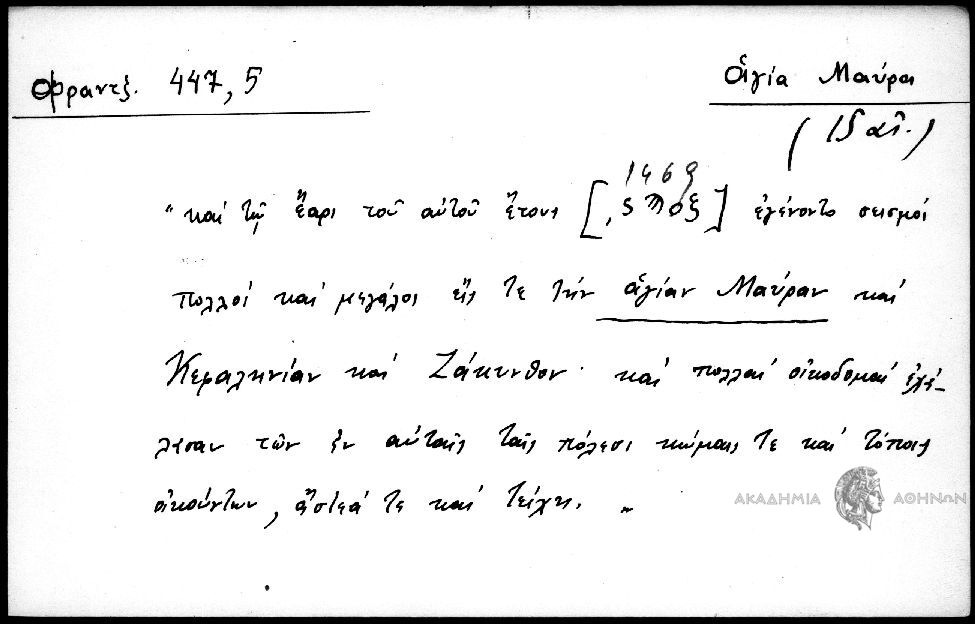 Φραντζ. 447, 5
Ἁγία Μαύρα
(15 αἰ.)
1469
"καὶ τῷ ἔαρι τοῦ αὐτοῦ ἔτους [͵ςϠοζ] ἐγένοντο σεισμοὶ
πολλοί καὶ μεγάλοι εἴς τε τὴν ἁγίαν Μαύραν καὶ
Κεφαληνίαν καὶ Ζάκυνθον· καὶ πολλαὶ οἰκοδομαὶ ἐχά-
λασαν τῶν ἐν αὐταῖς ταῖς πόλεσι κώμαις τε καὶ τόποις
οἰκούντων, ἄστεά τε καὶ τείχη. "
ΑΚΑΔΗΜΙΑ ΑΘΗΝΩΝ